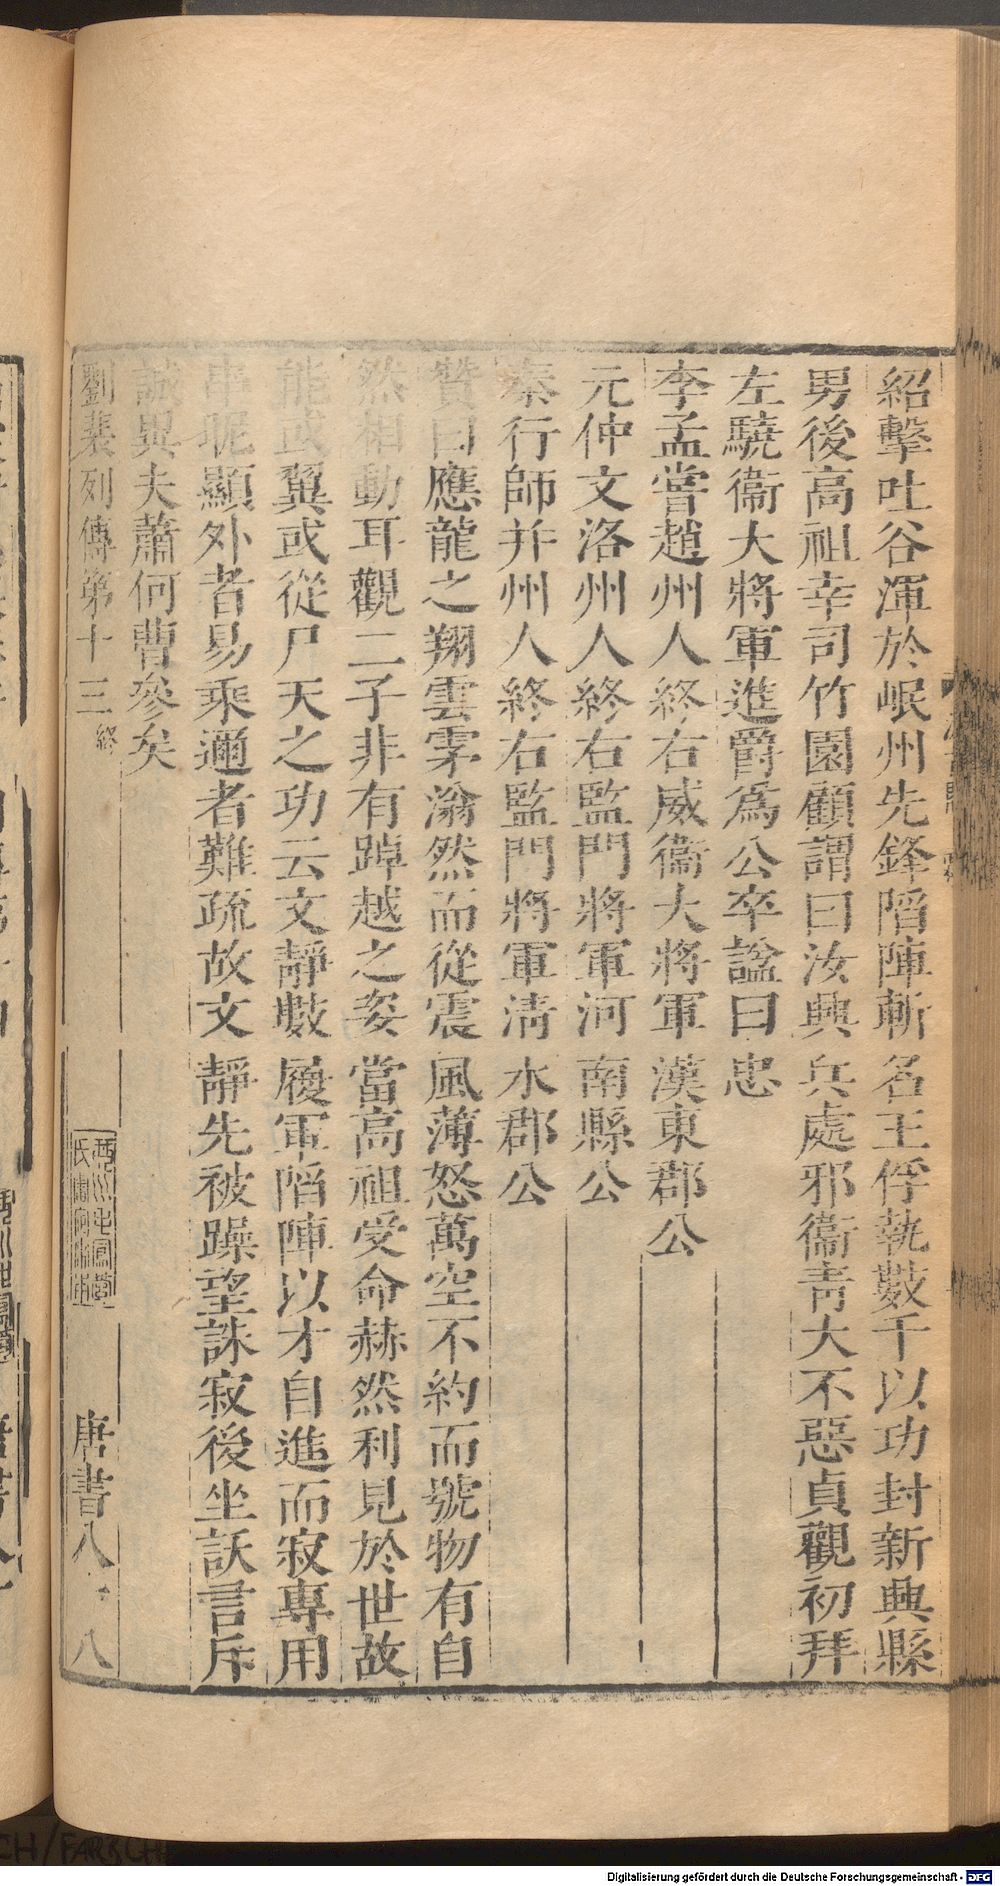 紹擊吐谷渾於岷州先鋒陷陣斬名王俘執數千以功封新興縣
男後高祖幸司竹園顧謂曰汝興兵處邪衞青大不惡貞觀初拜
左驍衞大將軍進爵爲公卒諡曰忠
李孟嘗趙州人終右威衞大將軍漢東郡公
元仲文洛州人終右監門將軍河南縣公
秦行師并州人終右監門將軍清水郡公
贊曰應龍之翔雲雺滃然而從震風薄怒萬空不約而號物有自
然相動耳觀二子非有踔越之姿當高祖受命赫然利見於世故
能或翼或從尸天之功云文靜數履軍陷陣以才自進而寂專用
串昵顯外者易乘邇者難疏故文靜先被躁望誅寂後坐訞言斥
誠異夫蕭何曹參矣
劉裴列傳第十三終
唐書八 八
Digitalisierung gefördert durch die Deutsche Forschungsgemeinschaft - DFG